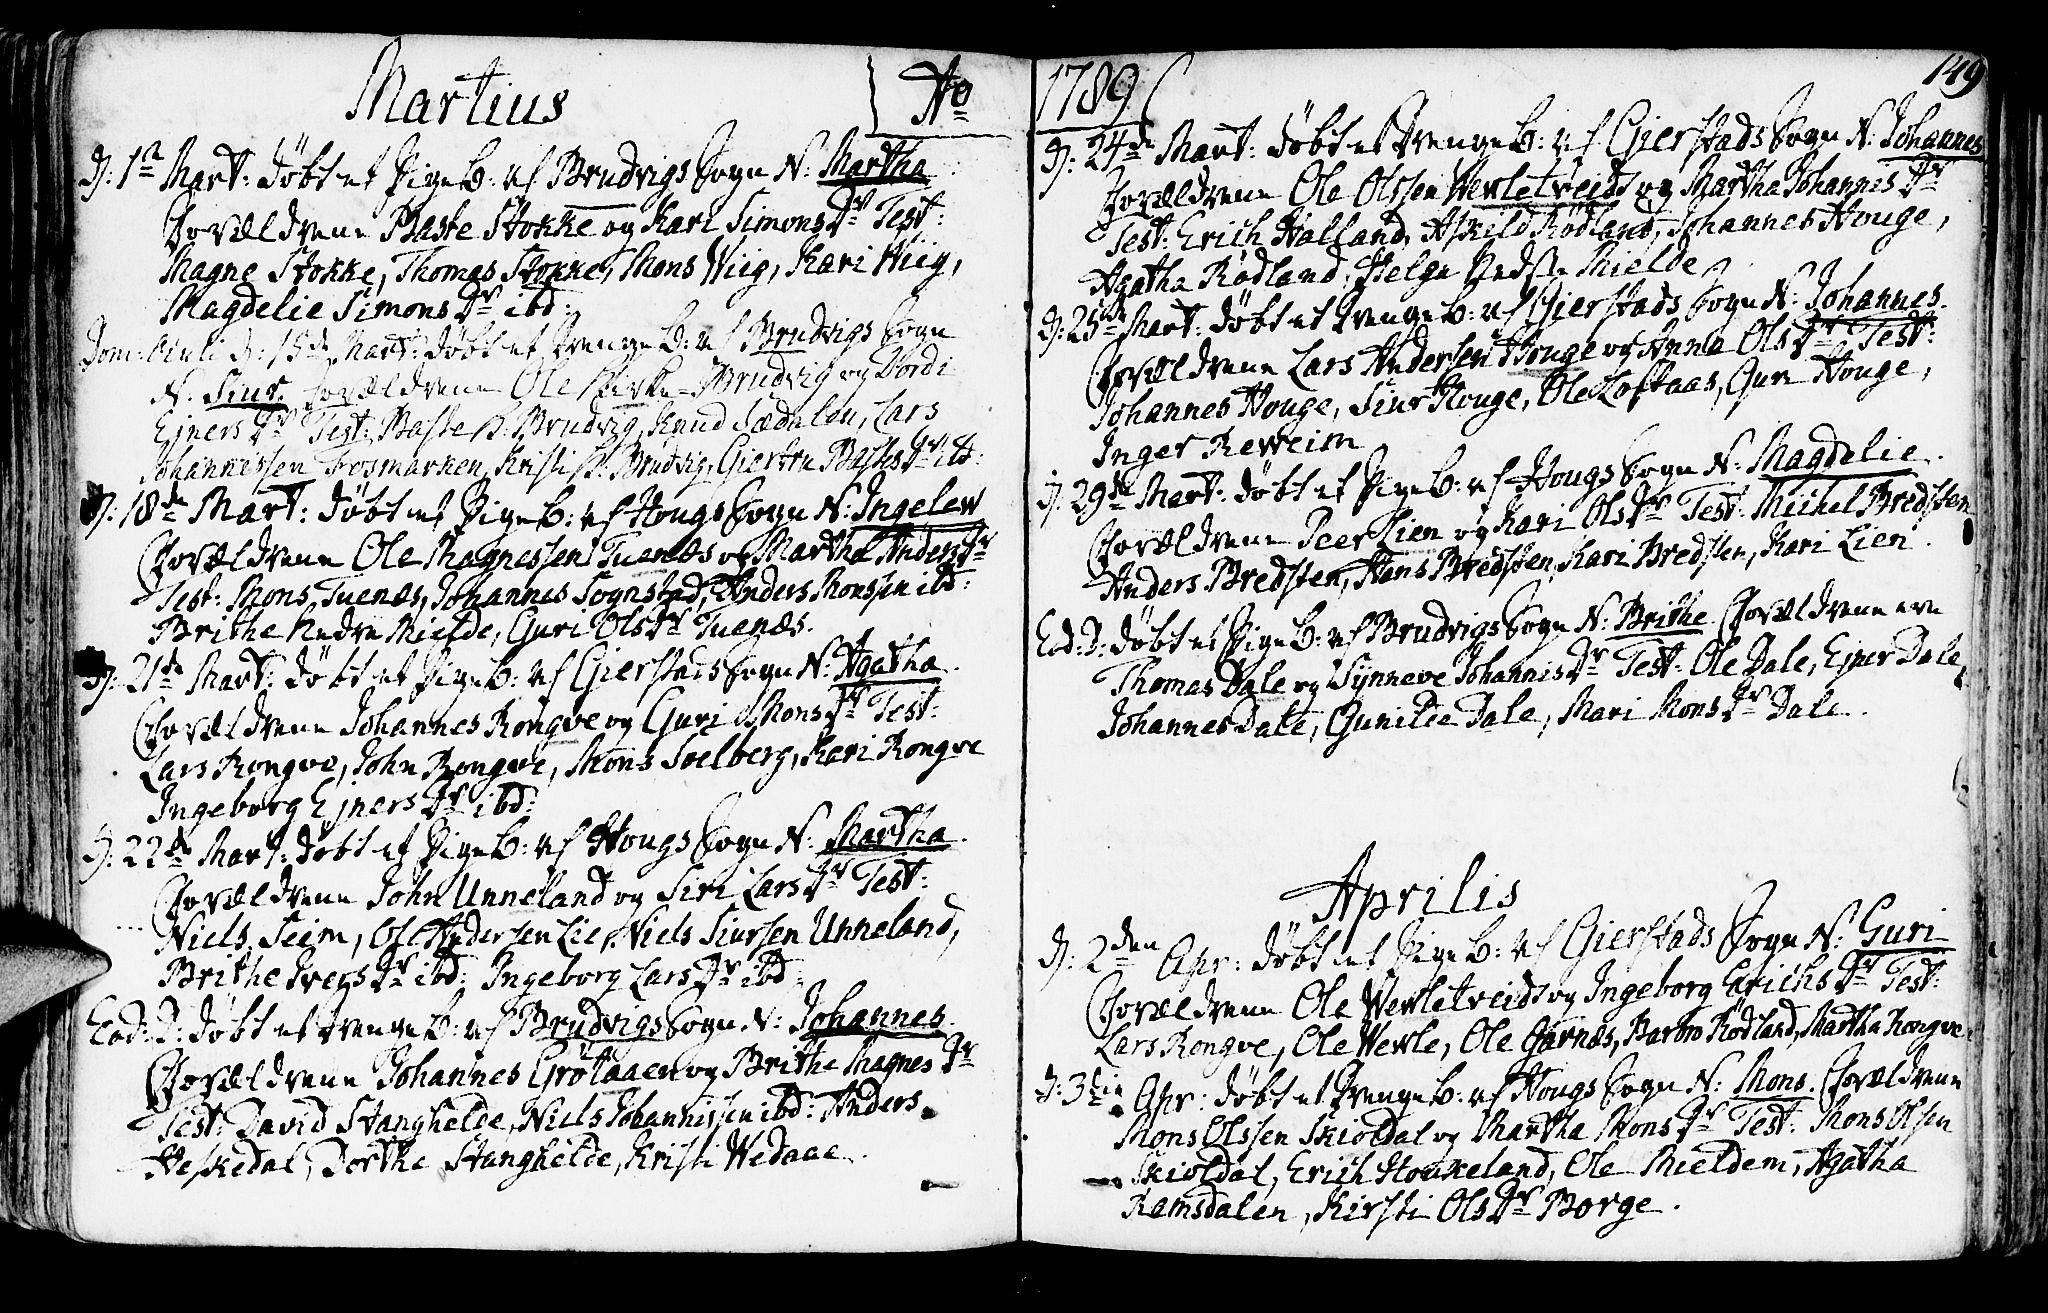 Martius
Ao
D: 1te Mart: døbt et Pige B: af Brudvigs Sogn N: Martha
Forældrene Baste Stokke og Kari Simons Dr Test:
Magne Stokke, Thomas Stokke, Mons Wiig, Kari Wiig,
Magdelie Simons Dr ibd:
Dom: Oculi d: 15de Mart: døbt et Drenge B: af Brudvigs Sogn
N: Siur. Forældrene Ole Kirke=Brudvig og Nordi
Ejners Dr Test: Baste K. Brudvig, Knud Sædalen, Lars
Johannessen Fosmarken, Kristi K. Brudvig, Giertru Bastes Dr ibd:
D: 18de Mart: døbt et Pige B: af Hougs Sogn N: Ingelew
Forældrene Ole Magnessen Tuenæs og Martha Anders Dr
Test: Mons Tuenæs, Johannes Sognstad, Anders Monssen ibd:
Brithe Nedre Mielde, Guri Ols Dr Tuenæs.
D: 21de Mart: døbt et Pige B: af Gierstads Sogn N: Agatha.
Forældrene Johannes Rongve og Guri Mons Dr Test:
Lars Rongve, John Rongve, Mons Soelberg, Kari Rongve
Ingeborg Ejners Dr ibd:
D: 22de Mart: døbt et Pige B: af Hougs Sogn N: Martha.
Forældrene John Unneland og Siri Lars Dr Test:
Niels Seim, Ole Andersen Lie, Niels Siursen Unneland,
Brithe Ivers Dr ibd: Ingeborg Lars Dr ibd:
Eod: D: døbt et Drenge B: af Brudvigs Sogn N: Johannes
Forældrene Johannes Grøtaaen og Brithe Magnes Dr
Test: David Stanghelde, Niels Johannissen ibd: Anders
Heskedal, Dorthe Stanghelde, Kristi Wedaae.
1789
149
D: 24de Mart: døbt et Drenge B: af Gierstads Sogn N: Johannes
Forældrene Ole Olssen Wevletveids og Martha Johannis Dr
Test: Erich Halland, Askild Rødland, Johannes Houge,
Agatha Rødland, Helge Mielde
D: 25de Mart: døbt et Drenge B: af Gierstads Sogn N: Johannes.
Forældrene Lars Andersen Houge og Anna Ols Dr Test:
Johannes Houge, Siur Houge, Ole Loftaas, Guri Houge,
Inger Reweim
D: 29de Mart: døbt et Pige B: af Hougs Sogn N: Magdelie.
Forældrene Peer Lien og Kari Ols Dr Test: Michel Bredsten
Anders Bredsten, Hans Bredsten, Kari Bredsten, Kari Lien.
Eod: D: døbt et Pige B: af Brudvigs Sogn N: Brithe Forældrene ere
Thomas Dale og Synneve Johannis Dr Test: Ole Dale, Ejner Dale,
Johannes Dale, Gunilie Dale, Mari Mons Dr Dale.
Aprilis
D: 2den Apr: døbt et Pige B: af Gierstads Sogn N: Guri
Forældrene Ole Wevletveids og Ingeborg Erichs Dr Test:
Lars Rongve, Ole Wevle, Ole Garnæs, Barbro Rødland, Martha Rongve.
D: 3die Apr: døbt et Drenge B: af Hougs Sogn N: Mons. Forældrene
Mons Olssen Skioldal og Martha Mons Dr Test: Mons Olsen
Skioldal, Erich Houkeland, Ole Mieldem, Agatha
Ramsdalen, Kirsti Ols Dr Borge.